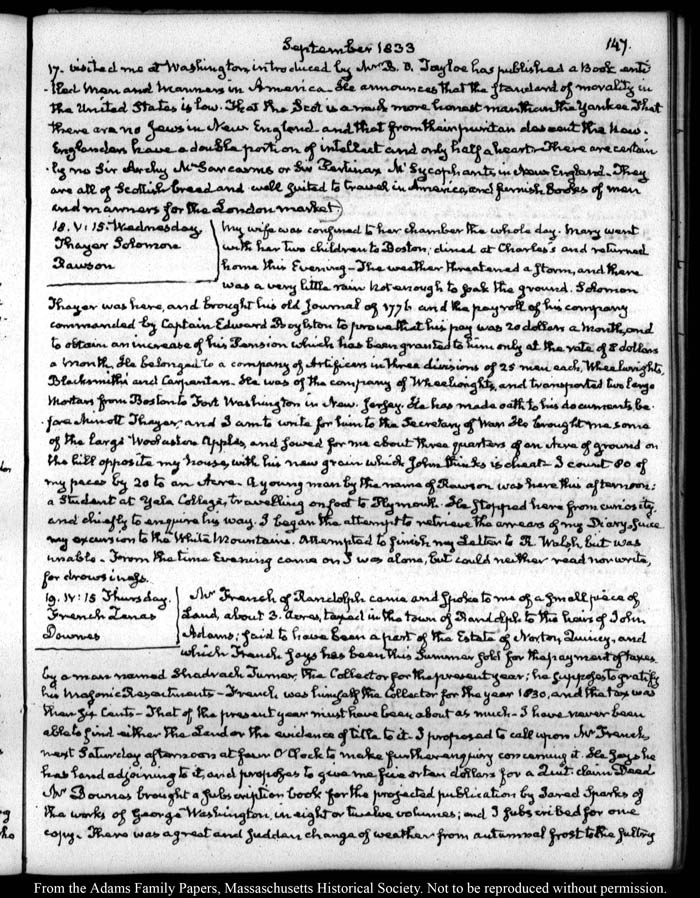 September 1833
147.
17. visited me at Washington, introduced by Mr B. O. Tayloe has published a Book enti
tled Men and Manners in America. He announces that the standard of morality in
the United States is law. That the Scot is a much more honest man than the Yankee. That
there are no Jews in New England and that from their puritan descent the New-
Englanders have a double portion of intellect and only half a heart. There are certain
ly no Sir Archy McSarcasms or Sir Pertinax McSycophants in New England. They
are all of Scottish breed and well suited to travel in America, and furnish Books of men
and manners for the London market.
18. V: 15. Wednesday.
Thayer Solomon
Rawson
My wife was confined to her chamber the whole day. Mary went
with her two children to Boston; dined at Charles's and returned
home this Evening. The weather threatened a storm, and there
was a very little rain not enough to soak the ground. Solomon
Thayer was here, and brought his old Journal of 1776 and the payroll of his company
commanded by Captain Edward Boylston to prove that his pay was 20 dollars a month, and
to obtain an increase of his Pension which has been granted to him only at the rate of 8 dollars
a month. He belonged to a company of Artificers in three divisions of 25 men each, Wheelwrights,
Blacksmiths and Carpenters. He was of the company of Wheelwrights, and transported two large
Mortars from Boston to Fort Washington in New Jersey. He has made oath to his documents be
fore Minott Thayer, and I am to write for him to the Secretary of War. He brought me some
of the large Apples, and sowed for me about three quarters of an Acre of ground on
the hill opposite my house, with his new grain which John thinks is cheat. I count 80 of
my paces by 20 to an Acre. A young man by the name of Rawson was here this afternoon:
a Student at Yale College, travelling on foot to Plymouth. He stopped here from curiosity,
and chiefly to enquire his way. I began the attempt to retrieve the arrears of my Diary since
my excursion to the White Mountains. Attempted to finish my Letter to R. Walsh, but was
unable. From the time Evening came on I was alone, but could neither read nor write,
for drowsiness.
19. IV: 15 Thursday.
French Zenas
Downes
Mr French of Randolph came and spoke to me of a small piece of
Land, about 3. Acres, taxed in the town of Randolph to the heirs of John
Adams; said to have been a part of the Estate of Norton Quincy, and
which French says has been this Summer sold for the payment of taxes
by a man named Shadrach Turner, the Collector for the present year; he supposes to gratify
his Masonic Resentments. French was himself the Collector for the year 1830, and the tax was
then six Cents. That of the present year must have been about as much. I have never been
able to find either the Land or the evidence of title to it. I proposed to call upon Mr French
next Saturday afternoon at four O'Clock to make further enquiry concerning it. He says he
has land adjoining to it, and proposes to give me five or ten dollars for a Quit-claim Deed.
Mr Downes brought a subscription book for the projected publication by Jared Sparks of
the works of George Washington, in eight or twelve volumes; and I subscribed for one
copy. There was a great and sudden change of weather from autumnal frost to the sultry
From the Adams Family Papers, Massachusetts Historical Society. Not to be reproduced without permission.